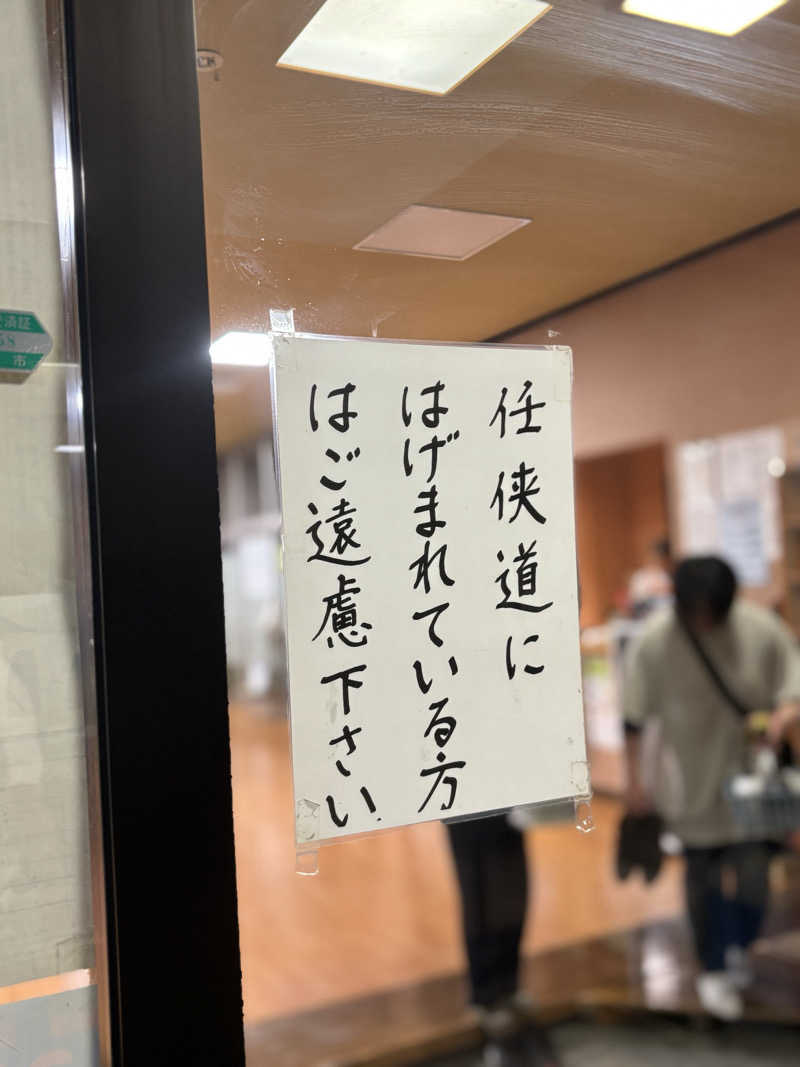 任侠道に
はげまれている方
はご遠慮下さい
済証
58
市